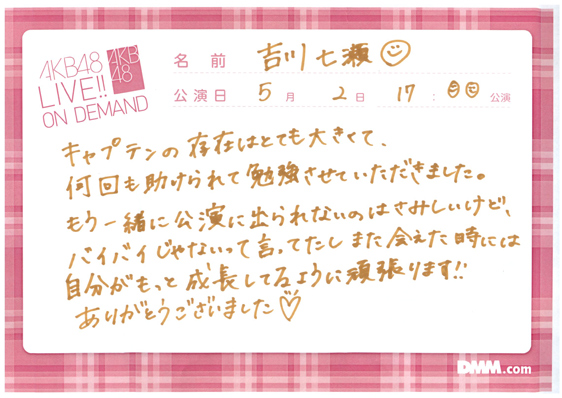 AKB48
LIVE!!
ON DEMAND
AKB
48
名 前 吉川 七瀬
公演日 5 月 2 日 17 : 00 公演
キャプテンの存在はとても大きくて、
何回も助けられて勉強させていただきました。
もう一緒に公演に出られないのはさみしいけど、
バイバイじゃないって言ってたし また会えた時には
自分がもっと成長してるように頑張ります!!
ありがとうございました♡
DMM.com